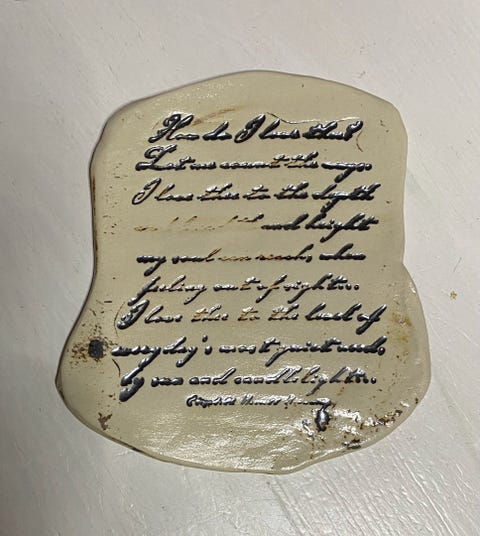 How do I love thee?
Let me count the ways.
I love thee to the depth
and breadth and height
my soul can reach, when
feeling out of sight...
I love thee to the level of
everyday's most quiet need,
by sun and candlelight...
Elizabeth Barrett Browning